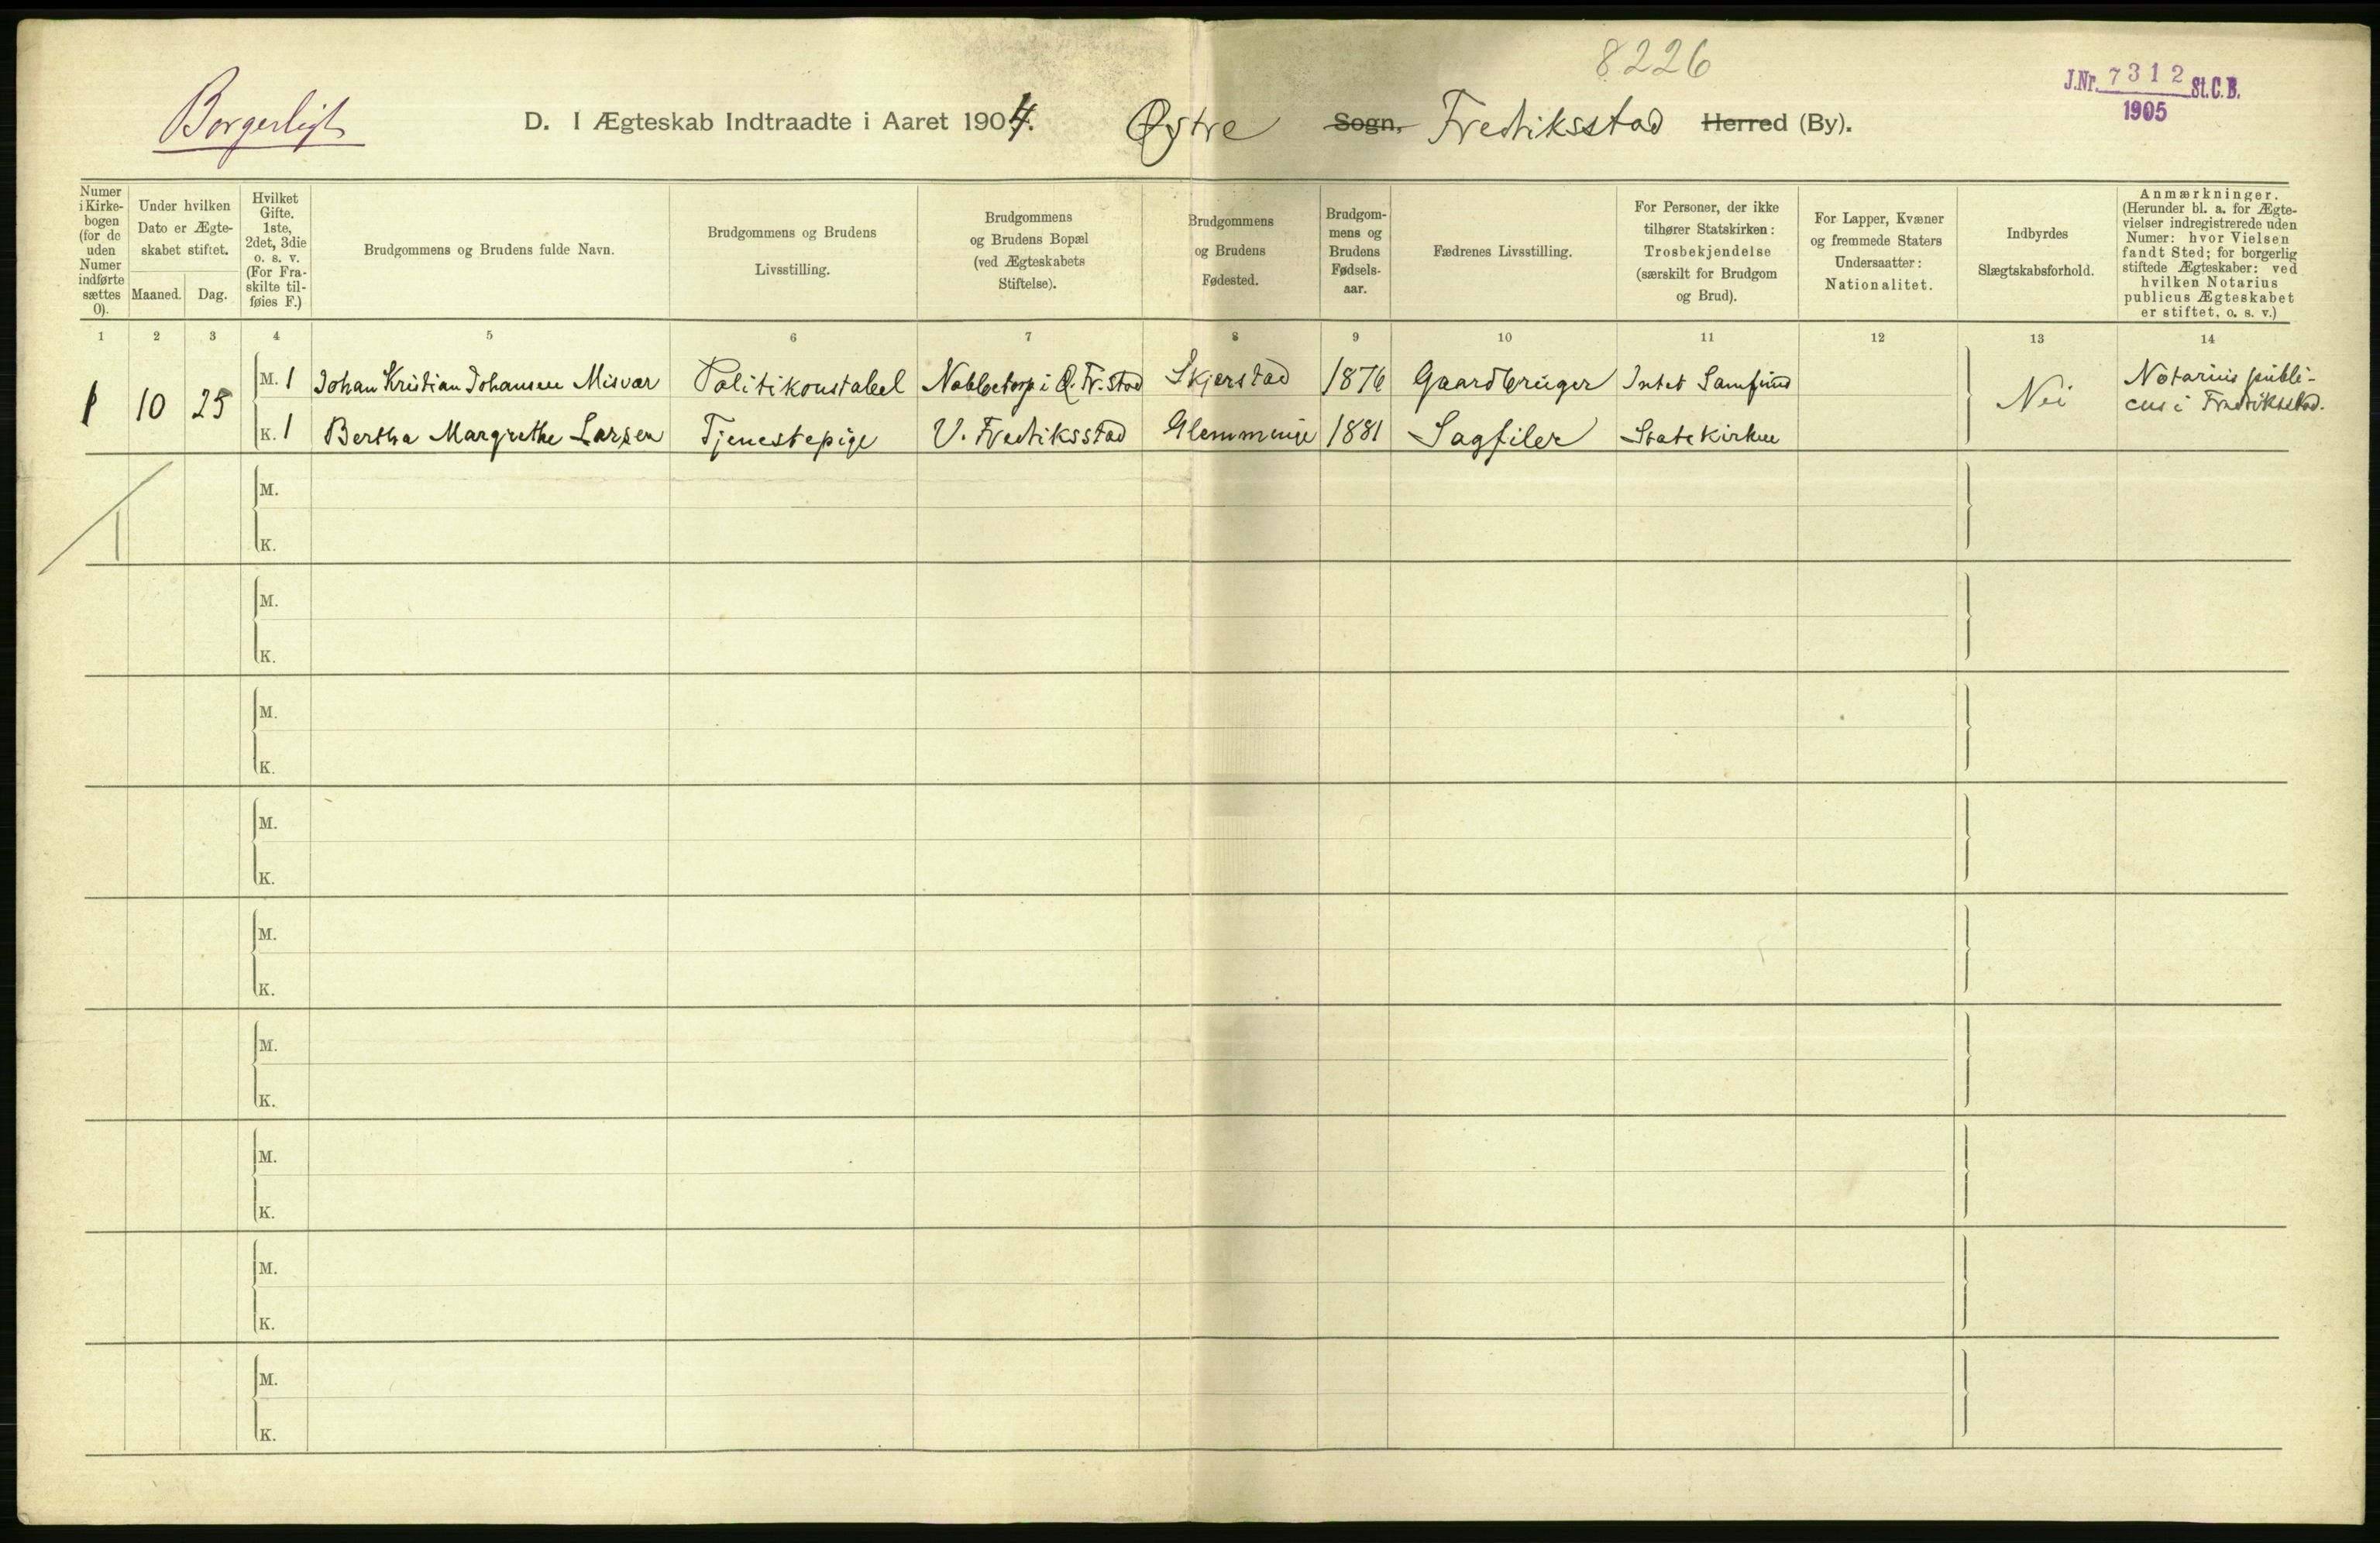 8226
J.Nr. 7312 St.C.B.
1905
Borgerligt
D. I Ægteskab Indtraadte i Aaret 1904. Østre Sogn, Fredriksstad Herred (By).
Numer
i Kirke-
bogen
(for de
uden
Numer
indførte
sættes
0).
Under hvilken
Dato er Ægte-
skabet stiftet.
Maaned. Dag.
Hvilket
Gifte.
1ste,
2det, 3die
o. s. v.
(For Fra-
skilte til-
føies F.)
Brudgommens og Brudens fulde Navn.
Brudgommens og Brudens
Livsstilling.
Brudgommens
og Brudens Bopæl
(ved Ægteskabets
Stiftelse).
Brudgommens
og Brudens
Fødested.
Brudgom-
mens og
Brudens
Fødsels-
aar.
Fædrenes Livsstilling.
For Personer, der ikke
tilhører Statskirken:
Trosbekjendelse
(særskilt for Brudgom
og Brud).
For Lapper, Kvæner
og fremmede Staters
Undersaatter:
Nationalitet.
Indbyrdes
Slægtskabsforhold.
Anmærkninger.
(Herunder bl. a. for Ægte-
vielser indregistrerede uden
Numer: hvor Vielsen
fandt Sted; for borgerlig
stiftede Ægteskaber: ved
hvilken Notarius
publicus Ægteskabet
er stiftet, o. s. v.)
1 2 3 4 5 6 7 8 9 10 11 12 13 14
1 10 25
M. 1 Johan Kristian Johansen Misvær Politikonstabel Nabbetorp i Ø. Fr.stad Skjerstad 1876 Gaardbruger Intet Samfund
K. 1 Bertha Margrethe Larsen Tjenestepige V. Fredriksstad Glemminge 1881 Sagfiler Statskirken
Nei
Notarius publi-
cus i Fredriksstad.
1
M.
K.
M.
K.
M.
K.
M.
K.
M.
K.
M.
K.
M.
K.
M.
K.
M.
K.